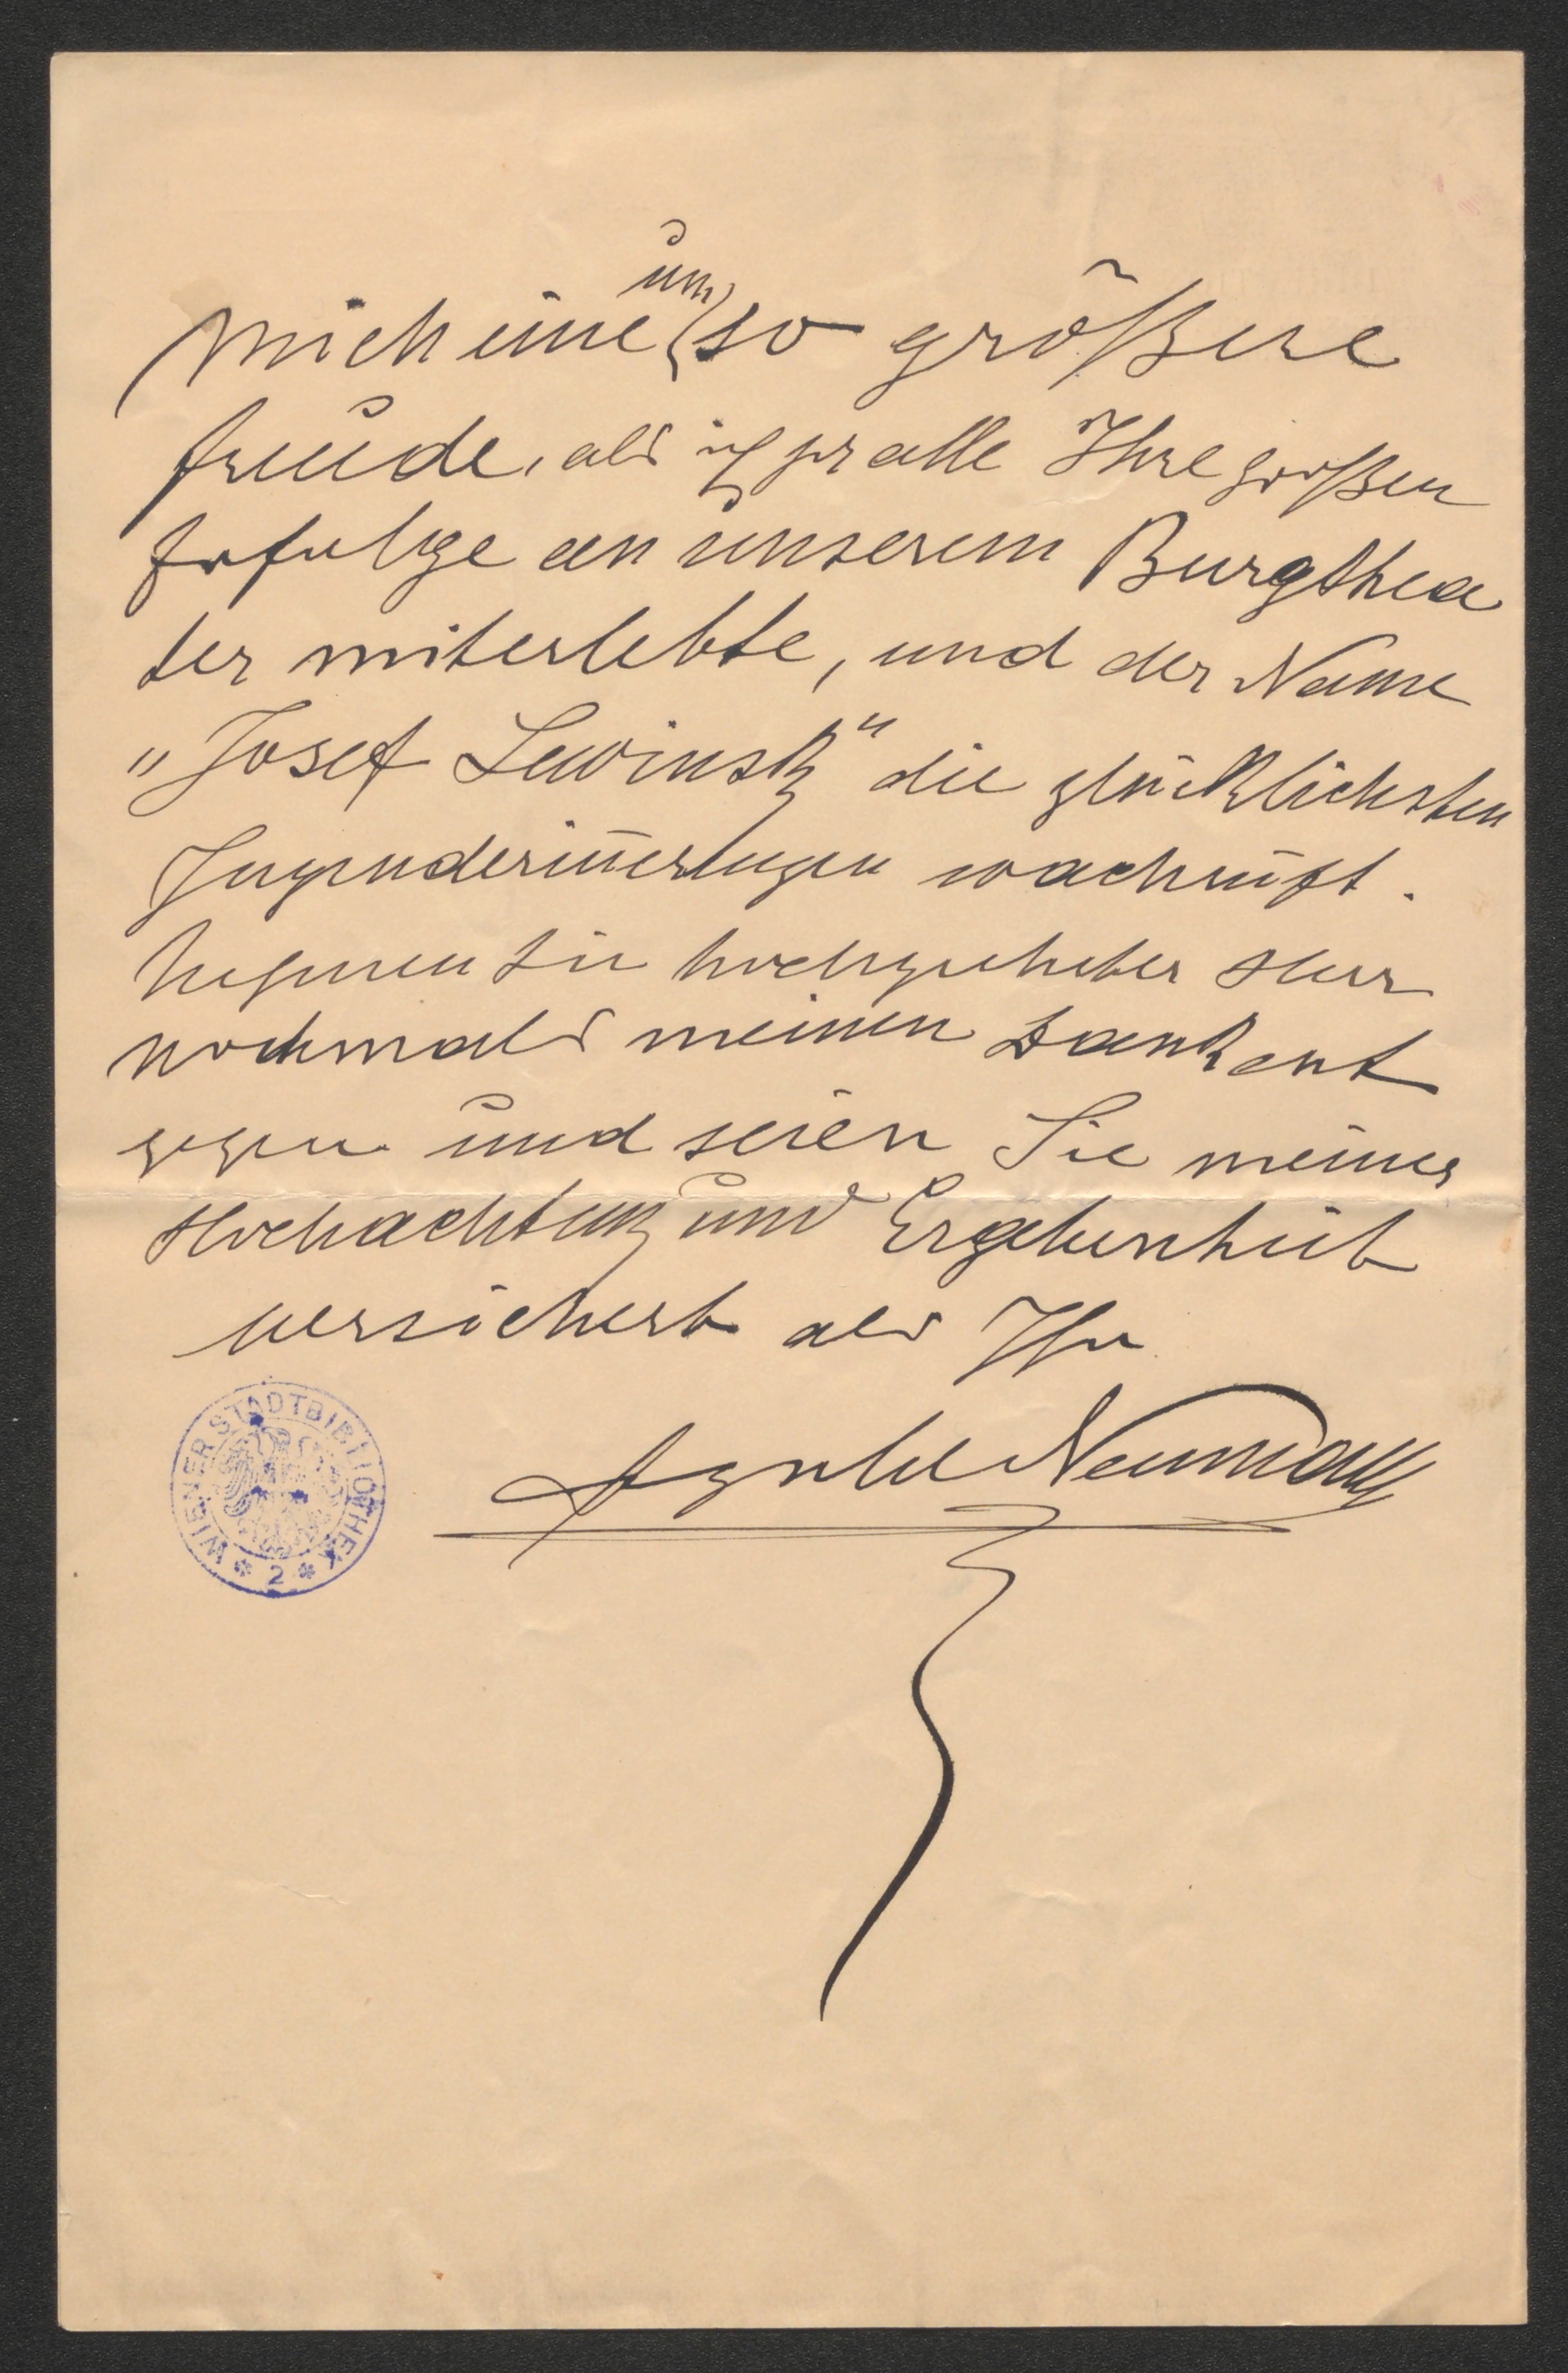 um
mich eine so größere
Freude, als ich ja alle Ihre großen
Erfolge an unserem Burgthea
ter miterlebte, und der Name
„Josef Lewinsky" die glücklichsten
Jugenderinnerungen wachruft.
Nehmen Sie hochgeehrter Herr
nochmals meinen Dank ent
gegen und seien Sie meiner
Hochachtung und Ergebenheit
versichert als Ihr
Neumann
WIENER STADTBIBLIOTHEK
* 2 *